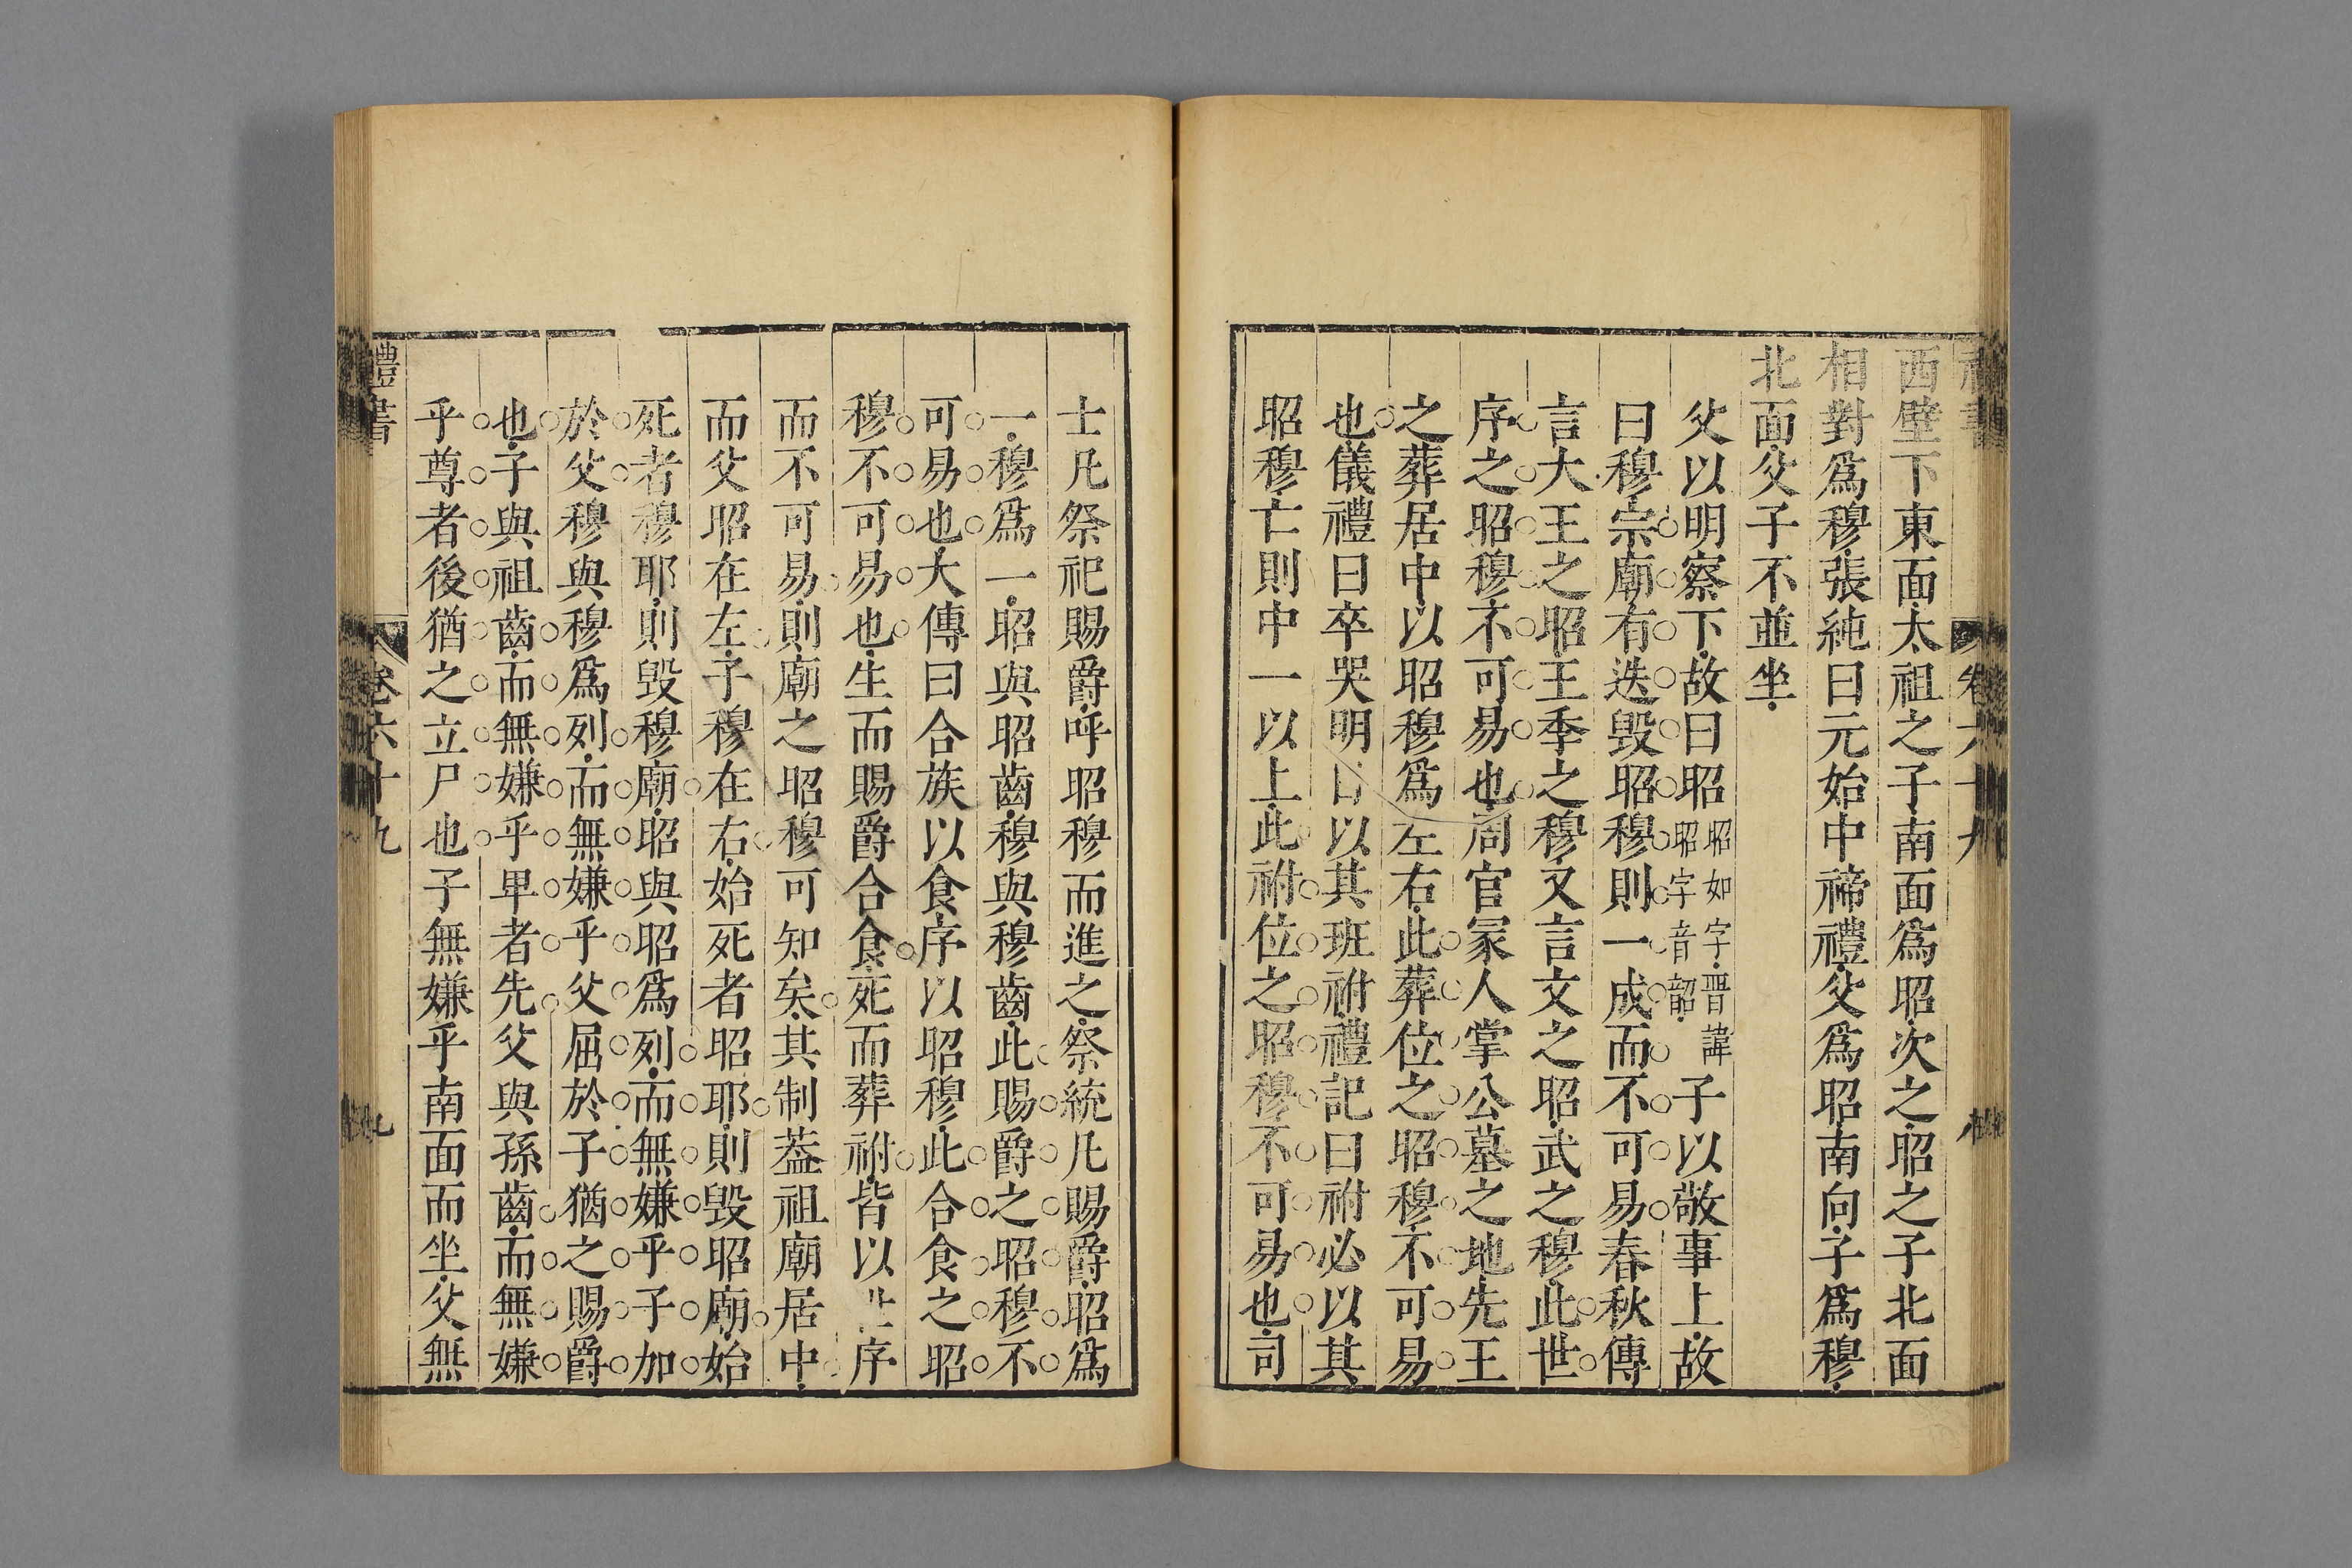 西壁下東面太祖之子南面爲昭次之昭之子北面
相對爲穆張純曰元始中禘禮父爲昭南向子爲穆
北面父子不並坐
父以明察下故曰昭昭如字晋諱昭字音韶子以敬事上故
曰穆宗廟有迭毀昭穆則一成而不可易春秋傳
言大王之昭王季之穆又言文之昭武之穆此世
序之昭穆不可易也周官冢人掌公墓之地先王
之葬居中以昭穆爲左右此葬位之昭穆不可易
也儀禮曰卒哭明日以其班祔禮記曰祔必以其
昭穆亡則中一以上此祔位之昭穆不可易也司
士凡祭祀賜爵呼昭穆而進之祭統凡賜爵昭爲
一穆爲一昭與昭齒穆與穆齒此賜爵之昭穆不
可易也大傳曰合族以食序以昭穆此合食之昭
穆不可易也生而賜爵合食死而葬祔皆以序
而不可易則廟之昭穆可知矣其制葢祖廟居中
而父昭在左子穆在右始死者昭耶則毀昭廟始
死者穆耶則毀穆廟昭與昭爲列而無嫌乎子加
於父穆與穆爲列而無嫌乎父屈於子猶之賜爵
也子與祖齒而無嫌乎卑者先父與孫齒而無嫌
乎尊者後猶之立尸也子無嫌乎南面而坐父無
禮書
卷六十九
九